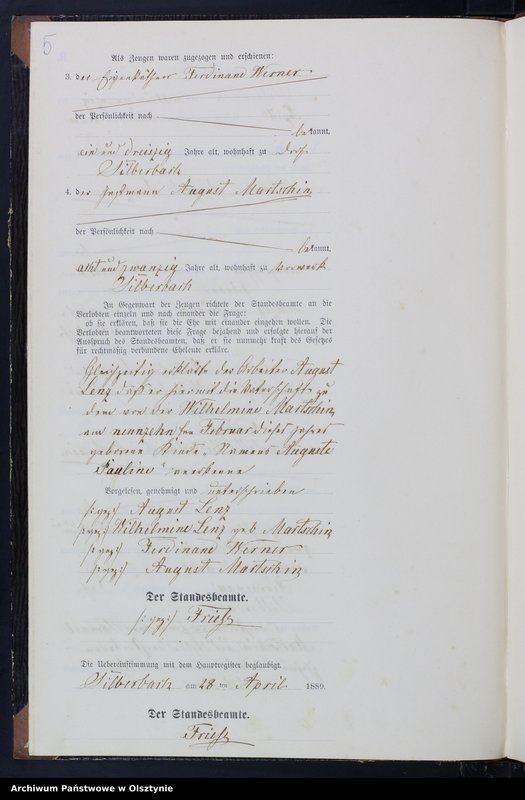 5
Als Zeugen waren zugezogen und erschienen:
3. der Eigenkäthner Ferdinand Werner
der Persönlichkeit nach
bekannt,
ein und dreißig Jahre alt, wohnhaft zu Dorf
Silberbach
4. der Instmann August Martschin
der Persönlichkeit nach
bekannt,
acht und zwanzig Jahre alt, wohnhaft zu Vorwerk
Silberbach
In Gegenwart der Zeugen richtete der Standesbeamte an die
Verlobten einzeln und nach einander die Frage:
ob sie erklären, daß sie die Ehe mit einander eingehen wollen. Die
Verlobten beantworteten diese Frage bejahend und erfolgte hierauf der
Ausspruch des Standesbeamten, daß er sie nunmehr kraft des Gesetzes
für rechtmäßig verbundene Eheleute erkläre.
Gleichzeitig erklärte der Arbeiter August
Lenz daß er hiermit die Vaterschaft zu
dem von der Wilhelmine Martschin
am neunzehnten Februar dieses Jahres
geborenen Kinde, Namens "Auguste
Pauline" anerkenne
Vorgelesen, genehmigt und unterschrieben
/:gez:/ August Lenz
/:gez:/ Wilhelmine Lenz geb Martschin
/:gez:/ Ferdinand Werner
/:gez:/ August Martschin
Der Standesbeamte.
/:gez:/ Friese
Die Uebereinstimmung mit dem Hauptregister beglaubigt.
Silberbach am 28 ten April 1889.
Der Standesbeamte.
Friese
Archiwum Państwowe w Olsztynie